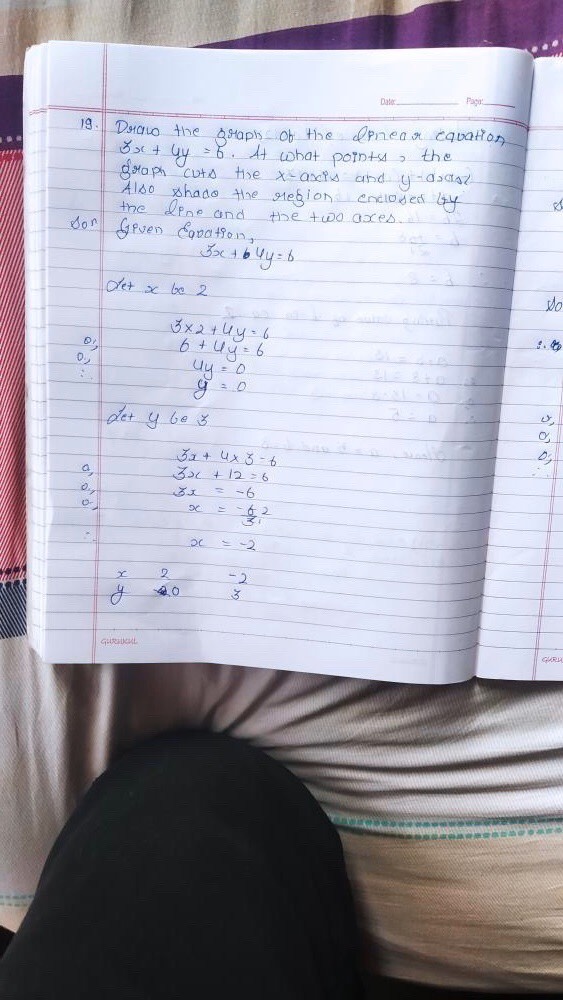 Date: Page:
19. Draw the graph of the linear equation
3x + 4y = 6. At what points, the
graph cuts the x-axis and y-axis?
Also shade the region enclosed by
the line and the two axes.
Soln Given Equation,
3x + 4y = 6
Let x be 2
3×2 + 4y = 6
o, 6 + 4y = 6
o, 4y = 0
∴ y = 0
Let y be 3
3x + 4×3 = 6
o, 3x + 12 = 6
o, 3x = -6
o, x = -6 2
3 1
∴ x = -2
x 2 -2
y 0 3
GURUKUL
So
o,
o,
o,
GURU